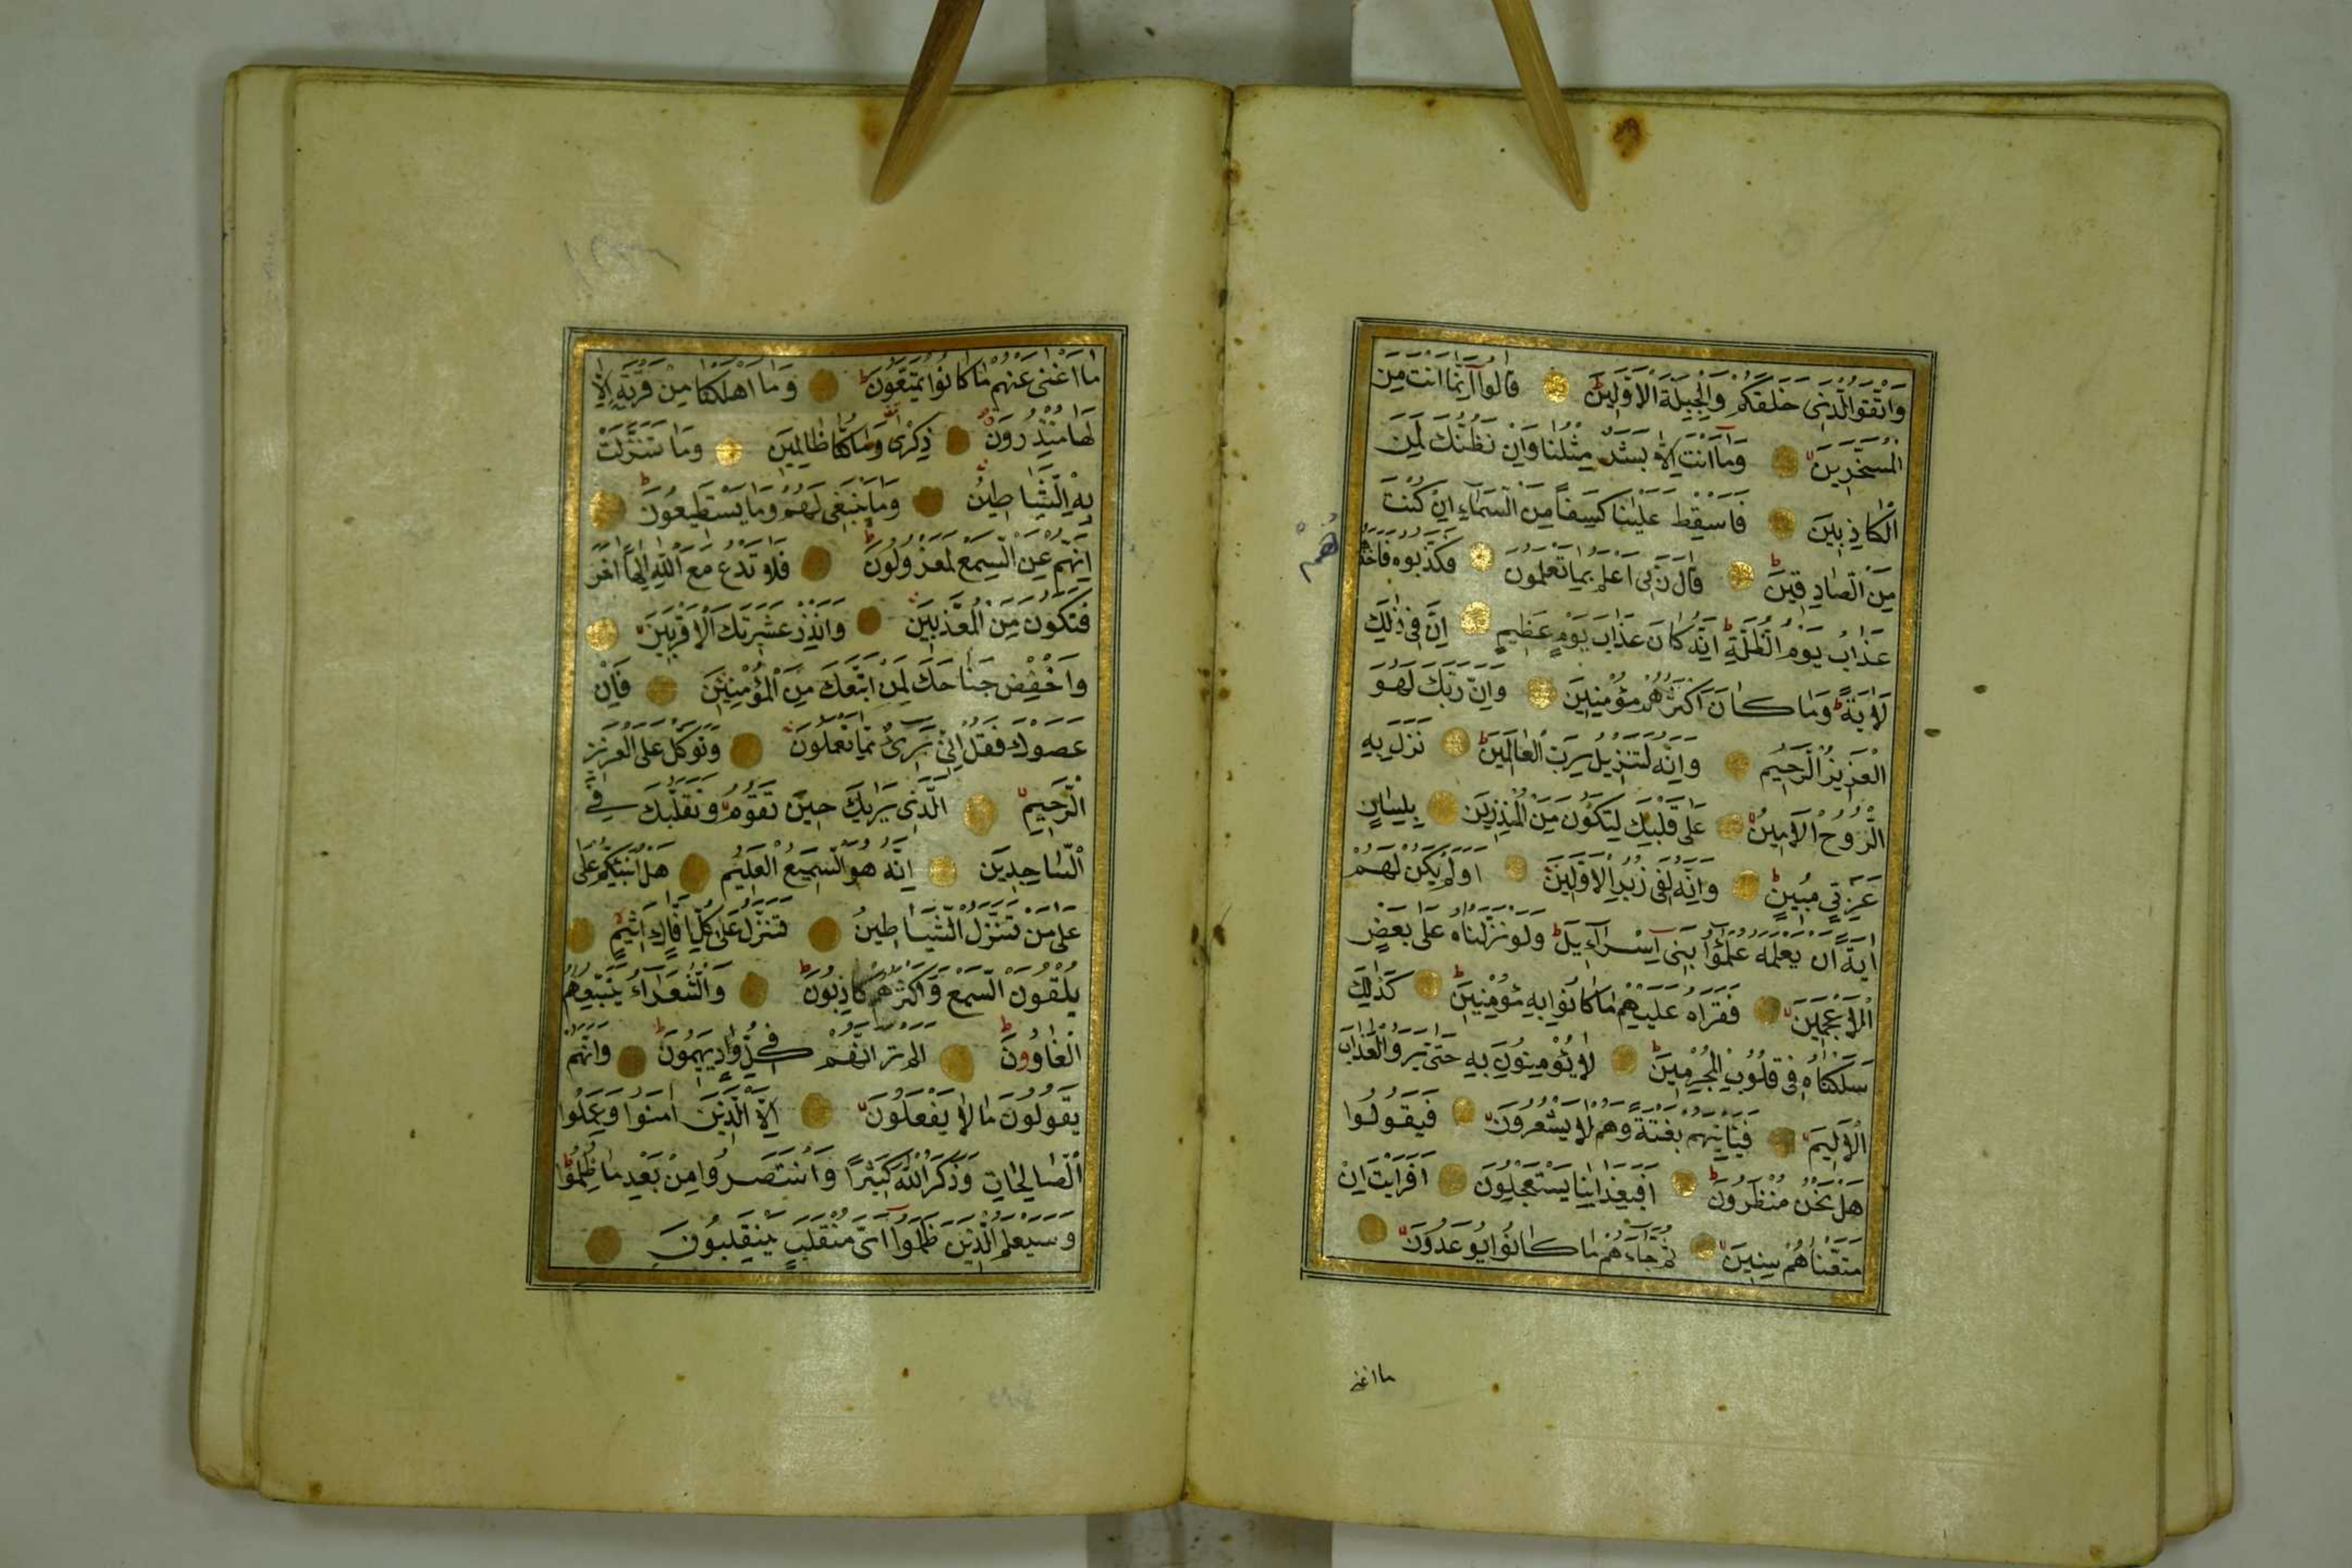 وَاتَّقُوا الَّذِى خَلَقَكُمْ وَالْجِبِلَّةَ الْاَوَّلِينَ قَالُوا اِنَّمَا اَنْتَ مِنَ
الْمُسَحَّرِينَ وَمَا اَنْتَ اِلَّا بَشَرٌ مِثْلُنَا وَاِنْ نَظُنُّكَ لَمِنَ
الْكَاذِبِينَ فَاَسْقِطْ عَلَيْنَا كِسَفًا مِنَ السَّمَاءِ اِنْ كُنْتَ
مِنَ الصَّادِقِينَ قَالَ رَبِّى اَعْلَمُ بِمَا تَعْمَلُونَ فَكَذَّبُوهُ فَاَخَذَهُمْ
عَذَابُ يَوْمِ الظُّلَّةِ اِنَّهُ كَانَ عَذَابَ يَوْمٍ عَظِيمٍ اِنَّ فِى ذٰلِكَ
لَاٰيَةً وَمَا كَانَ اَكْثَرُهُمْ مُؤْمِنِينَ وَاِنَّ رَبَّكَ لَهُوَ
الْعَزِيزُ الرَّحِيمُ وَاِنَّهُ لَتَنْزِيلُ رَبِّ الْعَالَمِينَ نَزَلَ بِهِ
الرُّوحُ الْاَمِينُ عَلٰى قَلْبِكَ لِتَكُونَ مِنَ الْمُنْذِرِينَ بِلِسَانٍ
عَرَبِىٍّ مُبِينٍ وَاِنَّهُ لَفِى زُبُرِ الْاَوَّلِينَ اَوَلَمْ يَكُنْ لَهُمْ
اٰيَةً اَنْ يَعْلَمَهُ عُلَمٰٓؤُا بَنِى اِسْرَٓائِيلَ وَلَوْ نَزَّلْنَاهُ عَلٰى بَعْضِ
الْاَعْجَمِينَ فَقَرَاَهُ عَلَيْهِمْ مَا كَانُوا بِهِ مُؤْمِنِينَ كَذٰلِكَ
سَلَكْنَاهُ فِى قُلُوبِ الْمُجْرِمِينَ لَا يُؤْمِنُونَ بِهِ حَتّٰى يَرَوُا الْعَذَابَ
الْاَلِيمَ فَيَاْتِيَهُمْ بَغْتَةً وَهُمْ لَا يَشْعُرُونَ فَيَقُولُوا
هَلْ نَحْنُ مُنْظَرُونَ اَفَبِعَذَابِنَا يَسْتَعْجِلُونَ اَفَرَاَيْتَ اِنْ
مَتَّعْنَاهُمْ سِنِينَ ثُمَّ جَاءَهُمْ مَا كَانُوا يُوعَدُونَ
ما اغنى
مَا اَغْنٰى عَنْهُمْ مَا كَانُوا يُمَتَّعُونَ وَمَا اَهْلَكْنَا مِنْ قَرْيَةٍ اِلَّا
لَهَا مُنْذِرُونَ ذِكْرٰى وَمَا كُنَّا ظَالِمِينَ وَمَا تَنَزَّلَتْ
بِهِ الشَّيَاطِينُ وَمَا يَنْبَغِى لَهُمْ وَمَا يَسْتَطِيعُونَ
اِنَّهُمْ عَنِ السَّمْعِ لَمَعْزُولُونَ فَلَا تَدْعُ مَعَ اللّٰهِ اِلٰهًا اٰخَرَ
فَتَكُونَ مِنَ الْمُعَذَّبِينَ وَاَنْذِرْ عَشِيرَتَكَ الْاَقْرَبِينَ
وَاخْفِضْ جَنَاحَكَ لِمَنِ اتَّبَعَكَ مِنَ الْمُؤْمِنِينَ فَاِنْ
عَصَوْكَ فَقُلْ اِنِّى بَرِىءٌ مِمَّا تَعْمَلُونَ وَتَوَكَّلْ عَلَى الْعَزِيزِ
الرَّحِيمِ الَّذِى يَرٰيكَ حِينَ تَقُومُ وَتَقَلُّبَكَ فِى
السَّاجِدِينَ اِنَّهُ هُوَ السَّمِيعُ الْعَلِيمُ هَلْ اُنَبِّئُكُمْ عَلٰى
عَلٰى مَنْ تَنَزَّلُ الشَّيَاطِينُ تَنَزَّلُ عَلٰى كُلِّ اَفَّاكٍ اَثِيمٍ
يُلْقُونَ السَّمْعَ وَاَكْثَرُهُمْ كَاذِبُونَ وَالشُّعَرَاءُ يَتَّبِعُهُمُ
الْغَاوُونَ اَلَمْ تَرَ اَنَّهُمْ فِى كُلِّ وَادٍ يَهِيمُونَ وَاَنَّهُمْ
يَقُولُونَ مَا لَا يَفْعَلُونَ اِلَّا الَّذِينَ اٰمَنُوا وَعَمِلُوا
الصَّالِحَاتِ وَذَكَرُوا اللّٰهَ كَثِيرًا وَانْتَصَرُوا مِنْ بَعْدِ مَا ظُلِمُوا
وَسَيَعْلَمُ الَّذِينَ ظَلَمُوا اَىَّ مُنْقَلَبٍ يَنْقَلِبُونَ